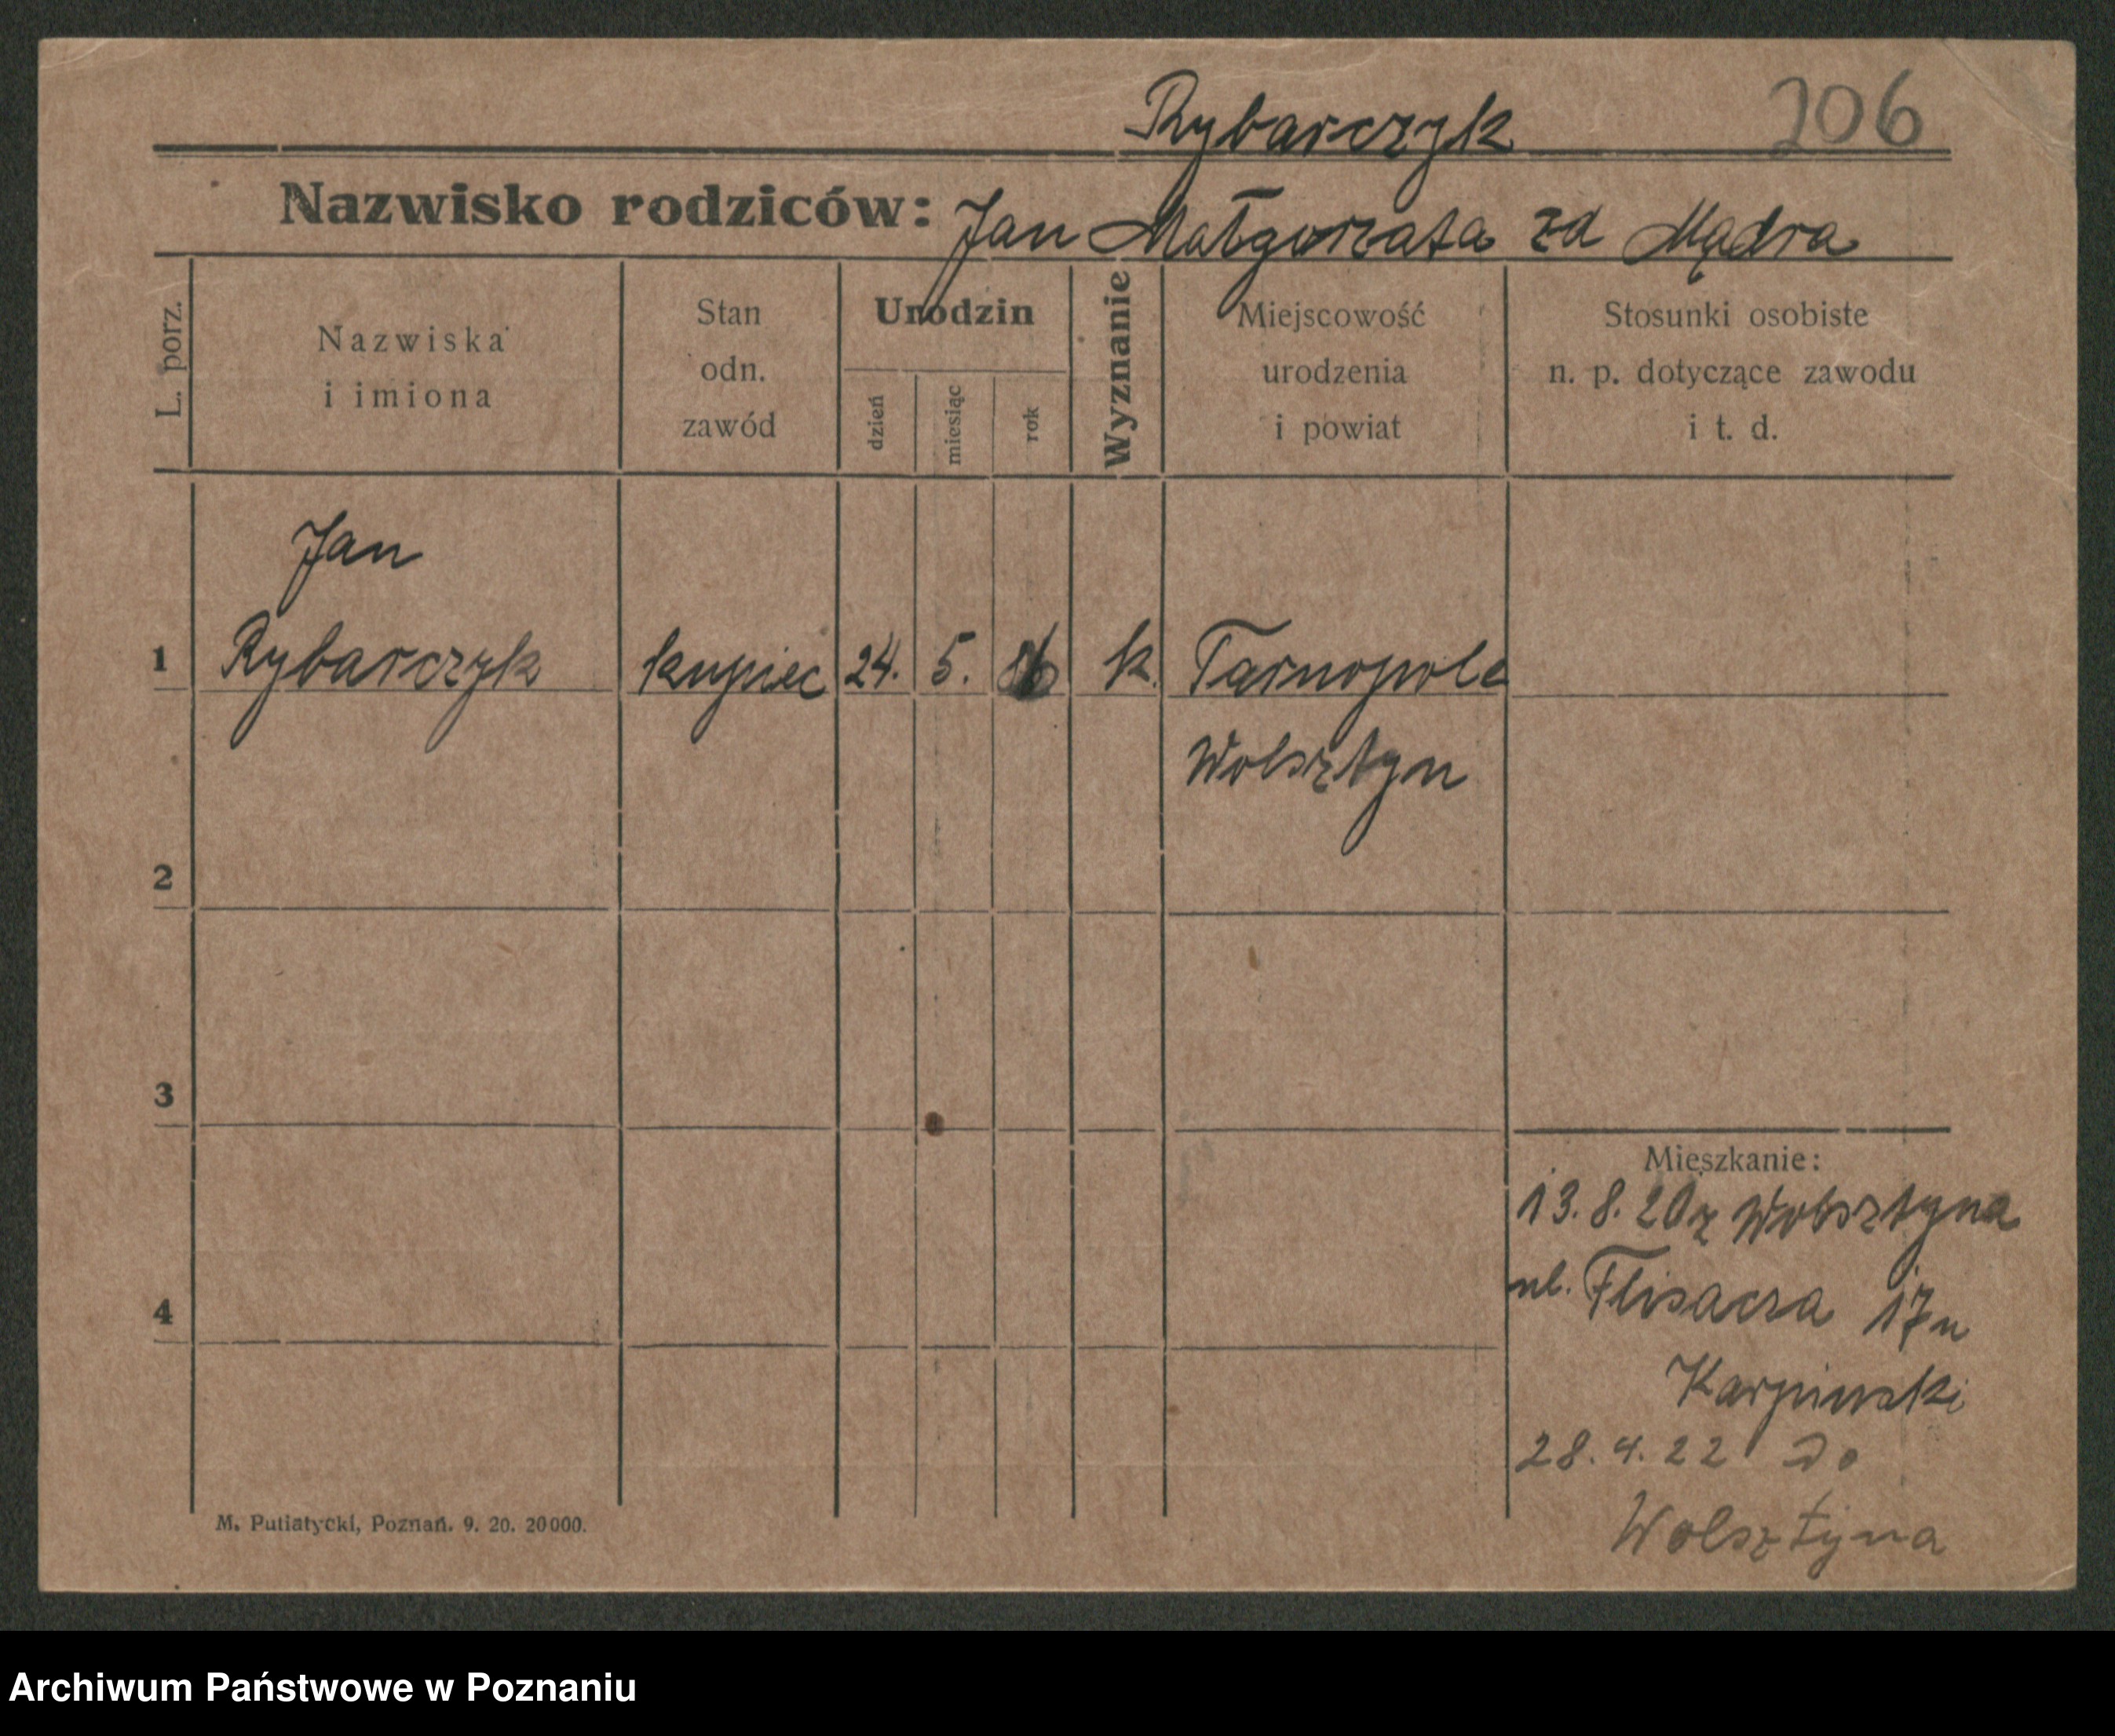 Rybarczyk 206
Nazwisko rodziców: Jan Małgorzata zd Mądra
L. porz.
Nazwiska i imiona
Stan odn. zawód
Urodzin
dzień
miesiąc
rok
Wyznanie
Miejscowość urodzenia i powiat
Stosunki osobiste n. p. dotyczące zawodu i t. d.
Jan
1 Rybarczyk kupiec 24. 5. k. Tarnopole
Wolsztyn
2
3
4
Mieszkanie:
13.8.20 z Wolsztyna
ul. Flisacza 17 u
Karpinski
28.4.22 do
Wolsztyna
M. Putiatycki, Poznań. 9. 20. 20000.
Archiwum Państwowe w Poznaniu